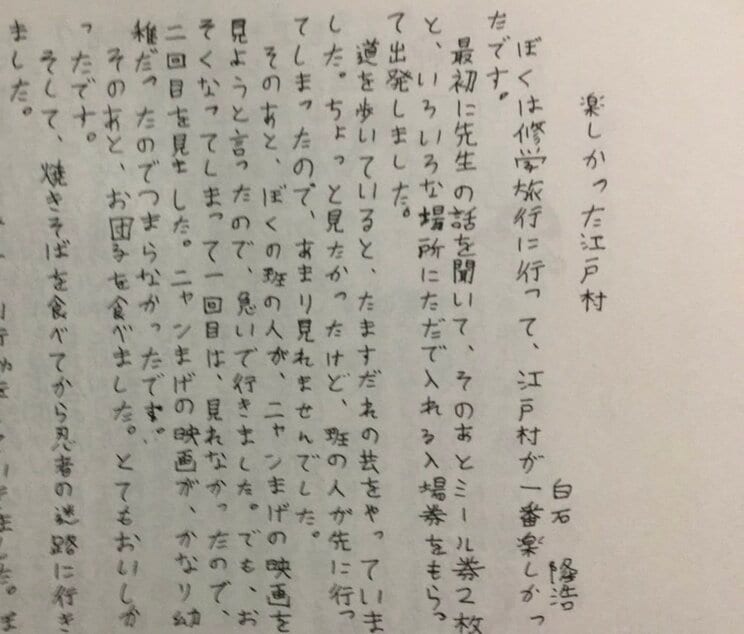 楽しかった江戸村
白石 隆浩
ぼくは修学旅行に行って、江戸村が一番楽しかっ
たです。
最初に先生の話を聞いて、そのあとミール券2枚
と、いろいろな場所にただで入れる入場券をもらっ
て出発しました。
道を歩いていると、たますだれの芸をやっていま
した。ちょっと見たかったけど、班の人が先に行っ
てしまったので、あまり見れませんでした。
そのあと、ぼくの班の人が、ニャンまげの映画を
見ようと言ったので、急いで行きました。でも、お
そくなってしまって一回目は、見れなかったので、
二回目を見ました。ニャンまげの映画が、かなり幼
稚だったのでつまらなかったです。
そのあと、お団子を食べました。とてもおいしか
ったです。
そして、焼きそばを食べてから忍者の迷路に行き
ました。